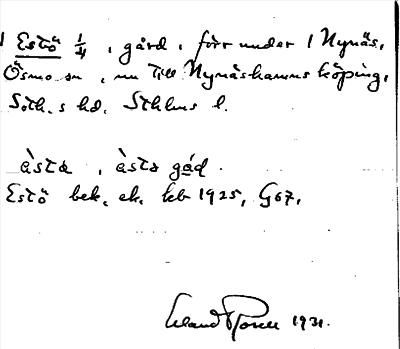 1 Estö 1/4, gård, förr under 1 Nynäs,
Ösmo sn, nu till Nynäshamns köping,
Soth.s hd. Sthlms l.
àsta, àsta gád
Estö bek. ek. kb 1925, G67,
Erland Rosell 1931.